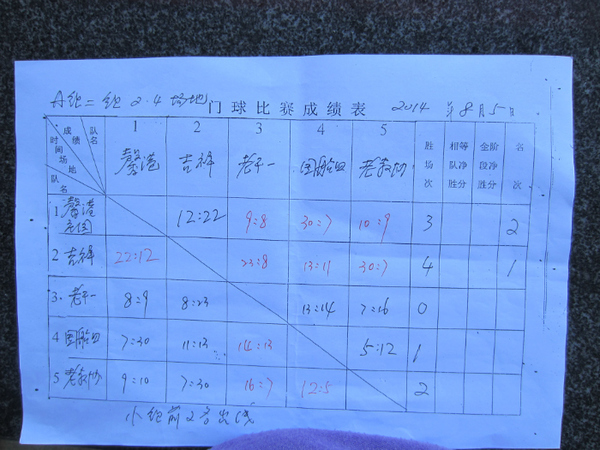 A组二组 2.4 场地 门球比赛成绩表 2014 年 8月5日
成绩 队名 时间 场地 队名 1 2 3 4 5 胜场次 相等队净胜分 全阶段净胜分 名次
馨港 吉祥 老干一 国船四 老教协
1. 馨港庄园 12:22 9:8 30:7 10:9 3 2
2 吉祥 22:12 23:8 13:11 30:7 4 1
3. 老干一 8:9 8:23 13:14 7:16 0
4 国船四 7:30 11:13 14:13 5:12 1
5 老教协 9:10 7:30 16:7 12:5 2
小组前2名出线